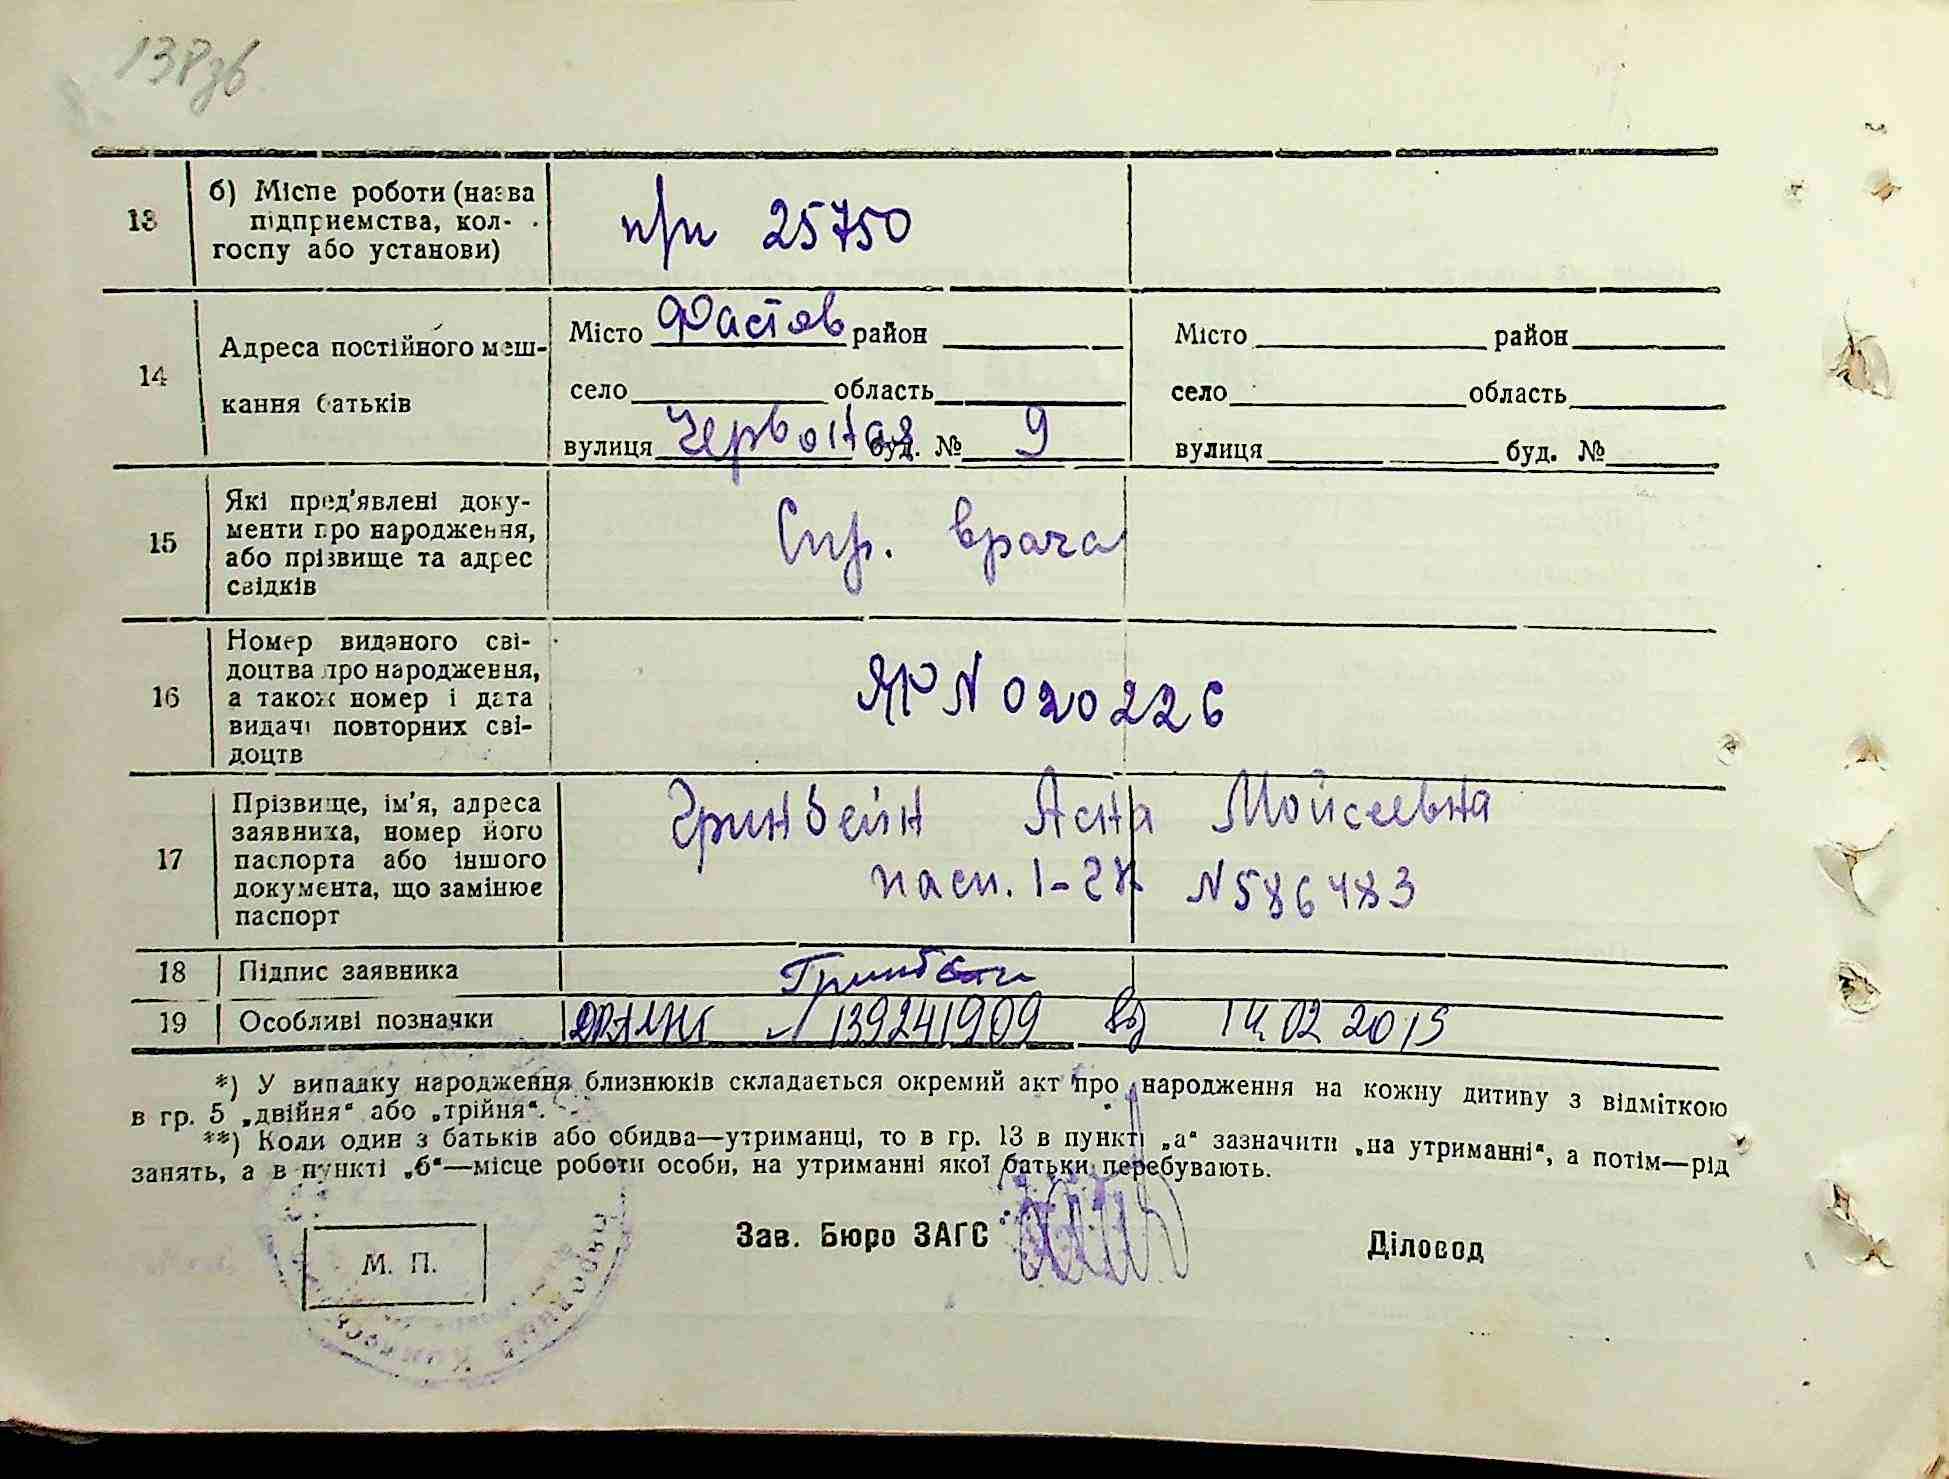 13
б) Місце роботи (назва
підприємства, кол-
госпу або установи)
п/п 25750
14
Адреса постійного меш-
кання батьків
Місто Фастов район
село область
вулиця Червоная буд. № 9
Місто район
село область
вулиця буд. №
15
Які пред'явлені доку-
менти про народження,
або прізвище та адрес
свідків
Спр. врача
16
Номер виданого сві-
доцтва про народження,
а також номер і дата
видачі повторних сві-
доцтв
ЯР N 020226
17
Прізвище, ім'я, адреса
заявника, номер його
паспорта або іншого
документа, що замінює
паспорт
Гринбейн Асна Мойсеевна
пасп. N 586483
18 Підпис заявника
Гринбейн
19 Особливі позначки
№ 139241909 від 14.02 2015
*) У випадку народження близнюків складається окремий акт про народження на кожну дитину з відміткою
в гр. 5 „двійня“ або „трійня“.
**) Коли один з батьків або обидва—утриманці, то в гр. 13 в пункті „а“ зазначити „на утриманні“, а потім—рід
занять, а в пункті „б“—місце роботи особи, на утриманні якої батьки перебувають.
М. П.
Зав. Бюро ЗАГС
Діловод